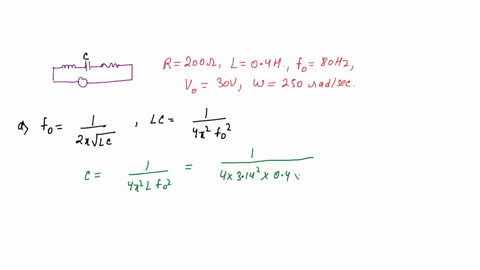 C
R = 200Ω, L = 0.4H., f₀ = 80Hz,
V₀ = 30V, ω = 250 rad/sec.
a) f₀ = 1/(2π√LC) , LC = 1/(4π² f₀²)
C = 1/(4π² L f₀²) = 1/(4 × 3.14² × 0.4 ×